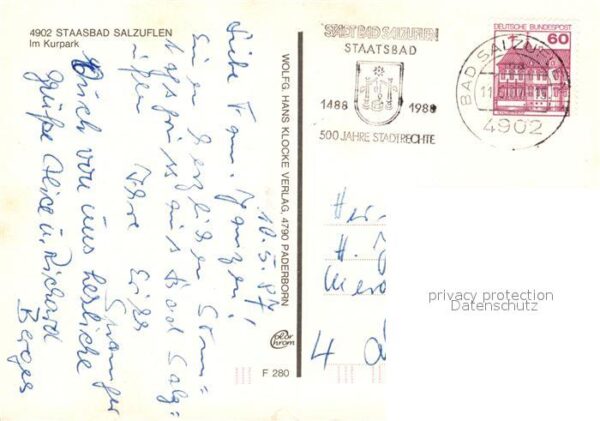 4902 STAASBAD SALZUFLEN
Im Kurpark
10.5.87
Liebe Fam.
einen herzlichen Sonn=
tagsgruß aus Bad Salz=
uflen
Ihre
Auch von uns herzliche
Grüße Alice u. Richard
Berges
WOLFG. HANS KLOCKE VERLAG, 4790 PADERBORN
F 280
STADT BAD SALZUFLEN
STAATSBAD
1488 1988
500 JAHRE STADTRECHTE
BAD SALZUFLEN
4902
DEUTSCHE BUNDESPOST
60
H.
4
privacy protection
Datenschutz